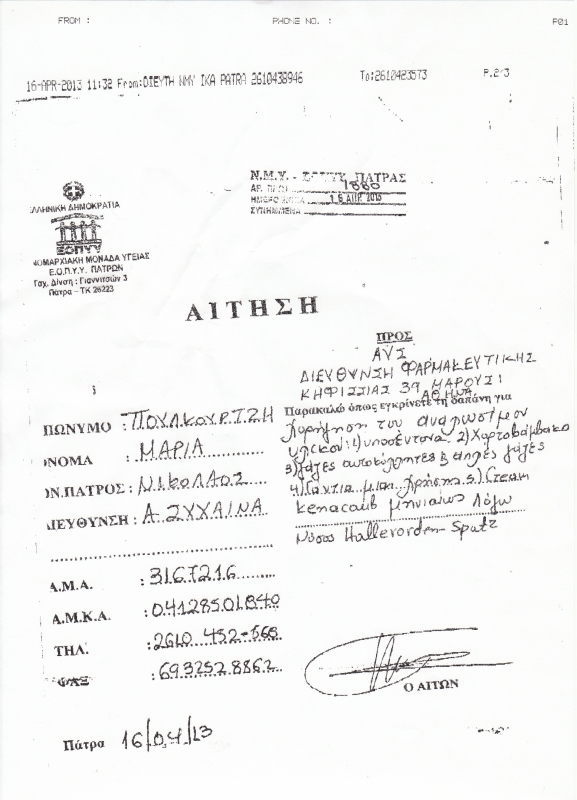 FROM : PHONE NO. : P01
16-APR-2013 11:32 From:DIEYTH NMY IKA PATRA 2610438946 To:2610423573 P.2/3
Ν.Μ.Υ. - ΕΟΠΥΥ ΠΑΤΡΑΣ
ΑΡ. ΠΡΩΤ 1880
ΗΜΕΡΟΜΗΝΙΑ 16 ΑΠΡ. 2013
ΣΥΝΗΜΜΕΝΑ
ΕΛΛΗΝΙΚΗ ΔΗΜΟΚΡΑΤΙΑ
ΕΟΠΥΥ
ΝΟΜΑΡΧΙΑΚΗ ΜΟΝΑΔΑ ΥΓΕΙΑΣ
Ε.Ο.Π.Υ.Υ. ΠΑΤΡΩΝ
Ταχ. Δ/νση : Γιαννιτσών 3
Πάτρα - ΤΚ 26223
ΑΙΤΗΣΗ
ΠΡΟΣ
ΑΥΣ
ΔΙΕΥΘΥΝΣΗ ΦΑΡΜΑΚΕΥΤΙΚΗΣ
ΚΗΦΙΣΣΙΑΣ 39 ΜΑΡΟΥΣΙ
ΑΘΗΝΑ
Παρακαλώ όπως εγκρίνετε τη δαπάνη για
Χορήγηση των αναλωσίμων
υλικών: 1) υποσέντονα. 2) Χαρτοβάμβακο
3) γάζες αυτοκόλλητες & απλές γάζες
4) Γάντια μιας χρήσης 5) Cream
Kenacomb μηνιαίως λόγω
Νόσος Hallevorden-Spatz
ΠΩΝΥΜΟ : ΠΟΥΛΚΟΥΡΤΖΗ
ΟΝΟΜΑ : ΜΑΡΙΑ
ΟΝ.ΠΑΤΡΟΣ : ΝΙΚΟΛΑΟΣ
ΔΙΕΥΘΥΝΣΗ : Α ΣΥΧΑΙΝΑ
Α.Μ.Α. : 3167216
Α.Μ.Κ.Α. : 04128501840
ΤΗΛ. : 2610 452-568
ΦΑΞ : 6932528862
Ο ΑΙΤΩΝ
Πάτρα 16/04/13